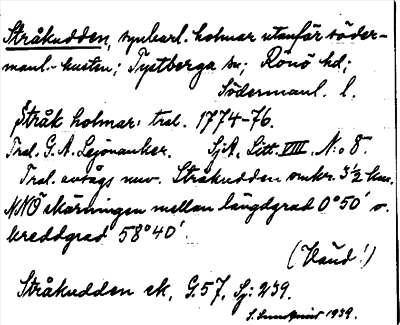 Stråkudden, synkarl. holmar utanför söder-
manl.-kusten; Tystberga sn; Rönö hd;
Södermanl. l.
Stråk holmar: tral. 1774-76.
Tral. G. A. Lejonanker. SjA, Litt. VIII. N:o 8.
Tral. avsågs nuv. Stråkudden omkr. 3½ km.
NNÖ skärningen mellan längdgrad 0°50' o.
breddgrad 58°40'.
(Vänd!)
Stråkudden ek, G.57, Sj: 239.
S. Sundqvist 1939.